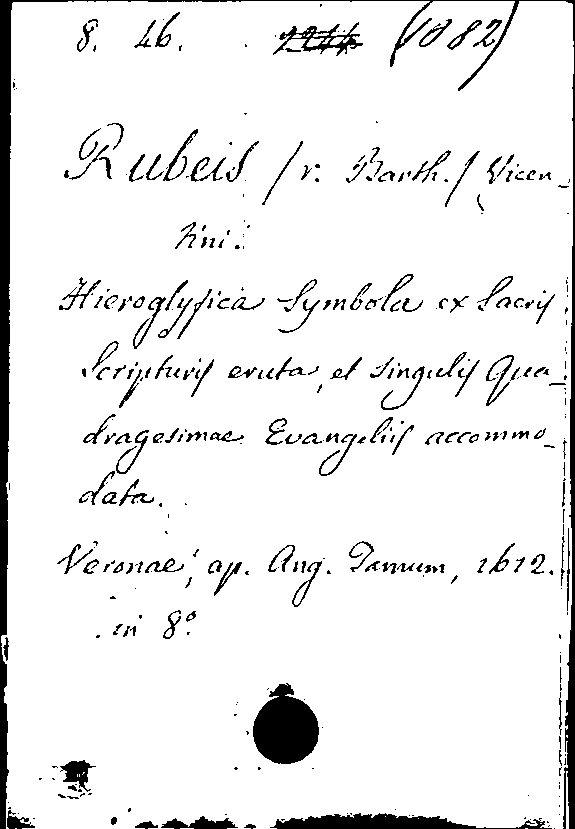 8. 46. 2244 (1082)
Rubeis /v. Barth./ Vicen-
tini.
Hieroglyfica Symbola ex Sacris
Scripturis eruta, et singulis Qua-
dragesimae Evangeliis accommo-
data.
Veronae, ap. Ang. Tamum, 1612.
in 8º